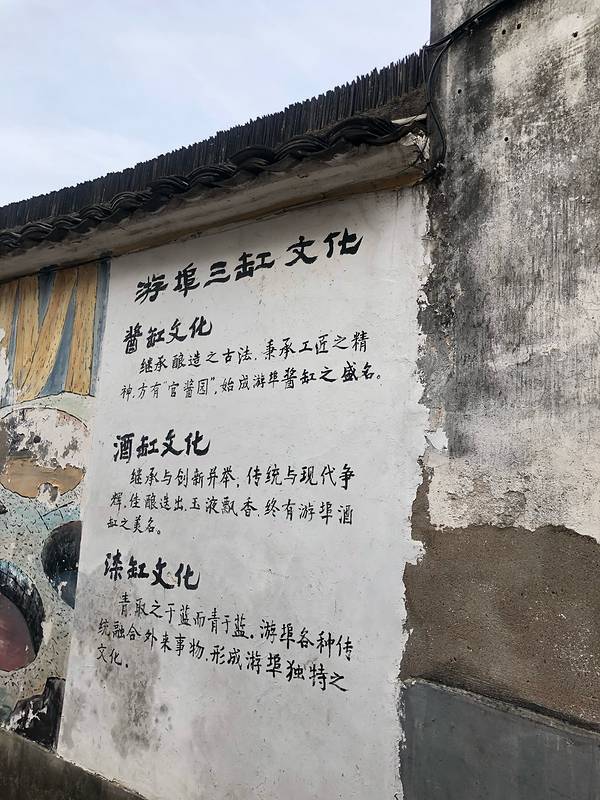 游埠三缸文化
酱缸文化
继承酿造之古法，秉承工匠之精
神，方有“官酱园”，始成游埠酱缸之盛名。
酒缸文化
继承与创新并举，传统与现代争
辉，佳酿造出，玉液飘香，终有游埠酒
缸之美名。
染缸文化
青，取之于蓝而青于蓝。游埠各种传
统融合外来事物，形成游埠独特之
文化。